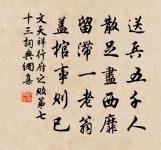 送兵五千人
散足盡西靡
留滯一老翁
蓋棺事則已
文天祥行府之敗第七
十三詞典網集